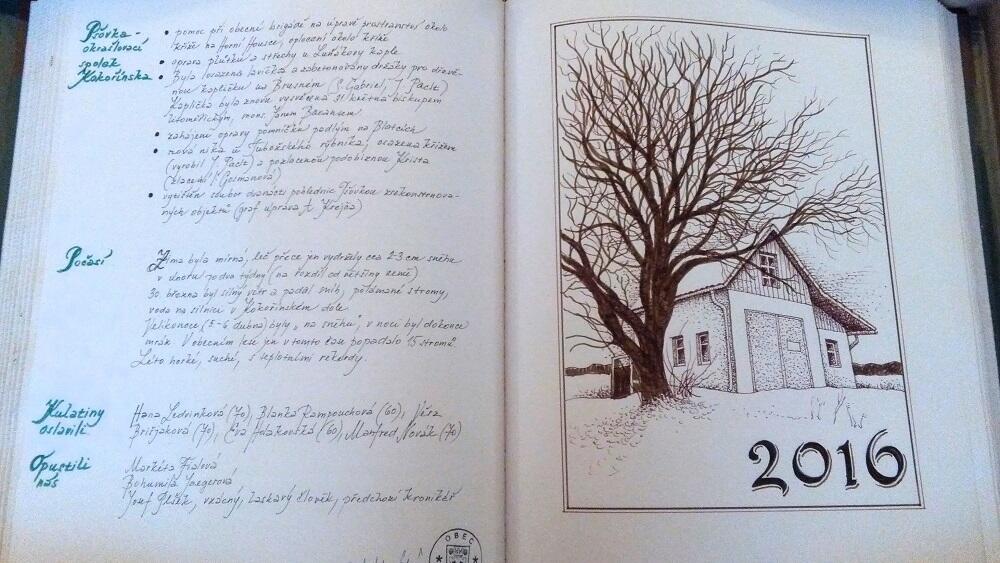 Pšovka - okrašlovací spolek Kokořínska
• pomoc při obecní brigádě na úpravě prostranství okolo
kříže na Horní Housce, oplocení okolo kříže
• oprava plůtku a střechy u Luňákovy kaple
• Byla osazena lavička a zabetonovány držáky pro dřevě-
nou kapličku v Brusném (S. Gabriel, J. Paclt)
Kaplička byla znovu vysvěcena 31. května biskupem
litoměřickým, mons. Janem Baxantem
• zahájení opravy pomníčku padlým na Blatcích
• nová nika u Tubožského rybníka, osazena křížem
(vyrobil J. Paclt) a pozlacenou podobiznou Krista
(zlacení Gosmanová)
• vytištěn soubor dvanácti pohlednic Pšovkou zrekonstruova-
ných objektů (graf. úprava A. Krejča)
Počasí
Zima byla mírná, leč přece jen vydržely cca 2-3 cm sněhu
v únoru zodva týdny (na rozdíl od většiny země)
30. března byl silný vítr a padal sníh, polámané stromy,
voda na silnici v Kokořínském dole.
Velikonoce (5-6 dubna) byly "na sněhu", v noci byl dokonce
mráz. V obecním lese jen v tomto času popadalo 15 stromů
Léto horké, suché, s teplotními rekordy.
Kulatiny oslavili
Hana Ledvinková (70), Blanka Rampouchová (60), Věra
(70), Eva Holakovská (60) Manfred Novák (70)
Opustili nás
Markéta Fialová
Bohumila Jaegerová
Josef Plšek, vzácný, laskavý člověk, předchozí kronikář
OBEC
2016